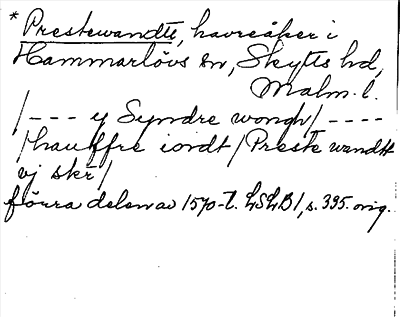 * Prestewandtt, havreåker i
Hammarlövs sn, Skytts hd,
Malm. l.
/--- y Syndre wongh/ ----
/hauffre iordt/Preste wandtt
vj skr/
förra delen av 1570-t. LSLB1, s. 395. orig.